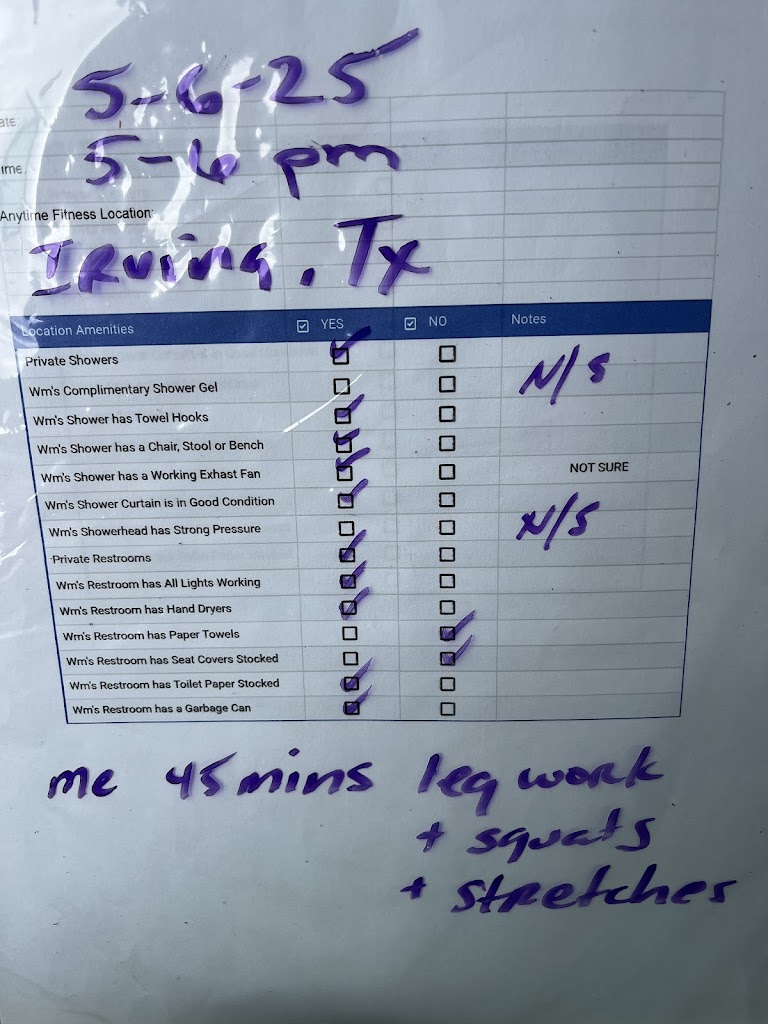 5-6-25
ate:
5-6 pm
ime:
Anytime Fitness Location:
Irving, Tx
Location Amenities ☑ YES ☑ NO Notes
Private Showers
Wm's Complimentary Shower Gel N/S
Wm's Shower has Towel Hooks
Wm's Shower has a Chair, Stool or Bench
Wm's Shower has a Working Exhast Fan NOT SURE
Wm's Shower Curtain is in Good Condition
Wm's Showerhead has Strong Pressure N/S
Private Restrooms
Wm's Restroom has All Lights Working
Wm's Restroom has Hand Dryers
Wm's Restroom has Paper Towels
Wm's Restroom has Seat Covers Stocked
Wm's Restroom has Toilet Paper Stocked
Wm's Restroom has a Garbage Can
me 45 mins leg work
+ squats
+ stretches